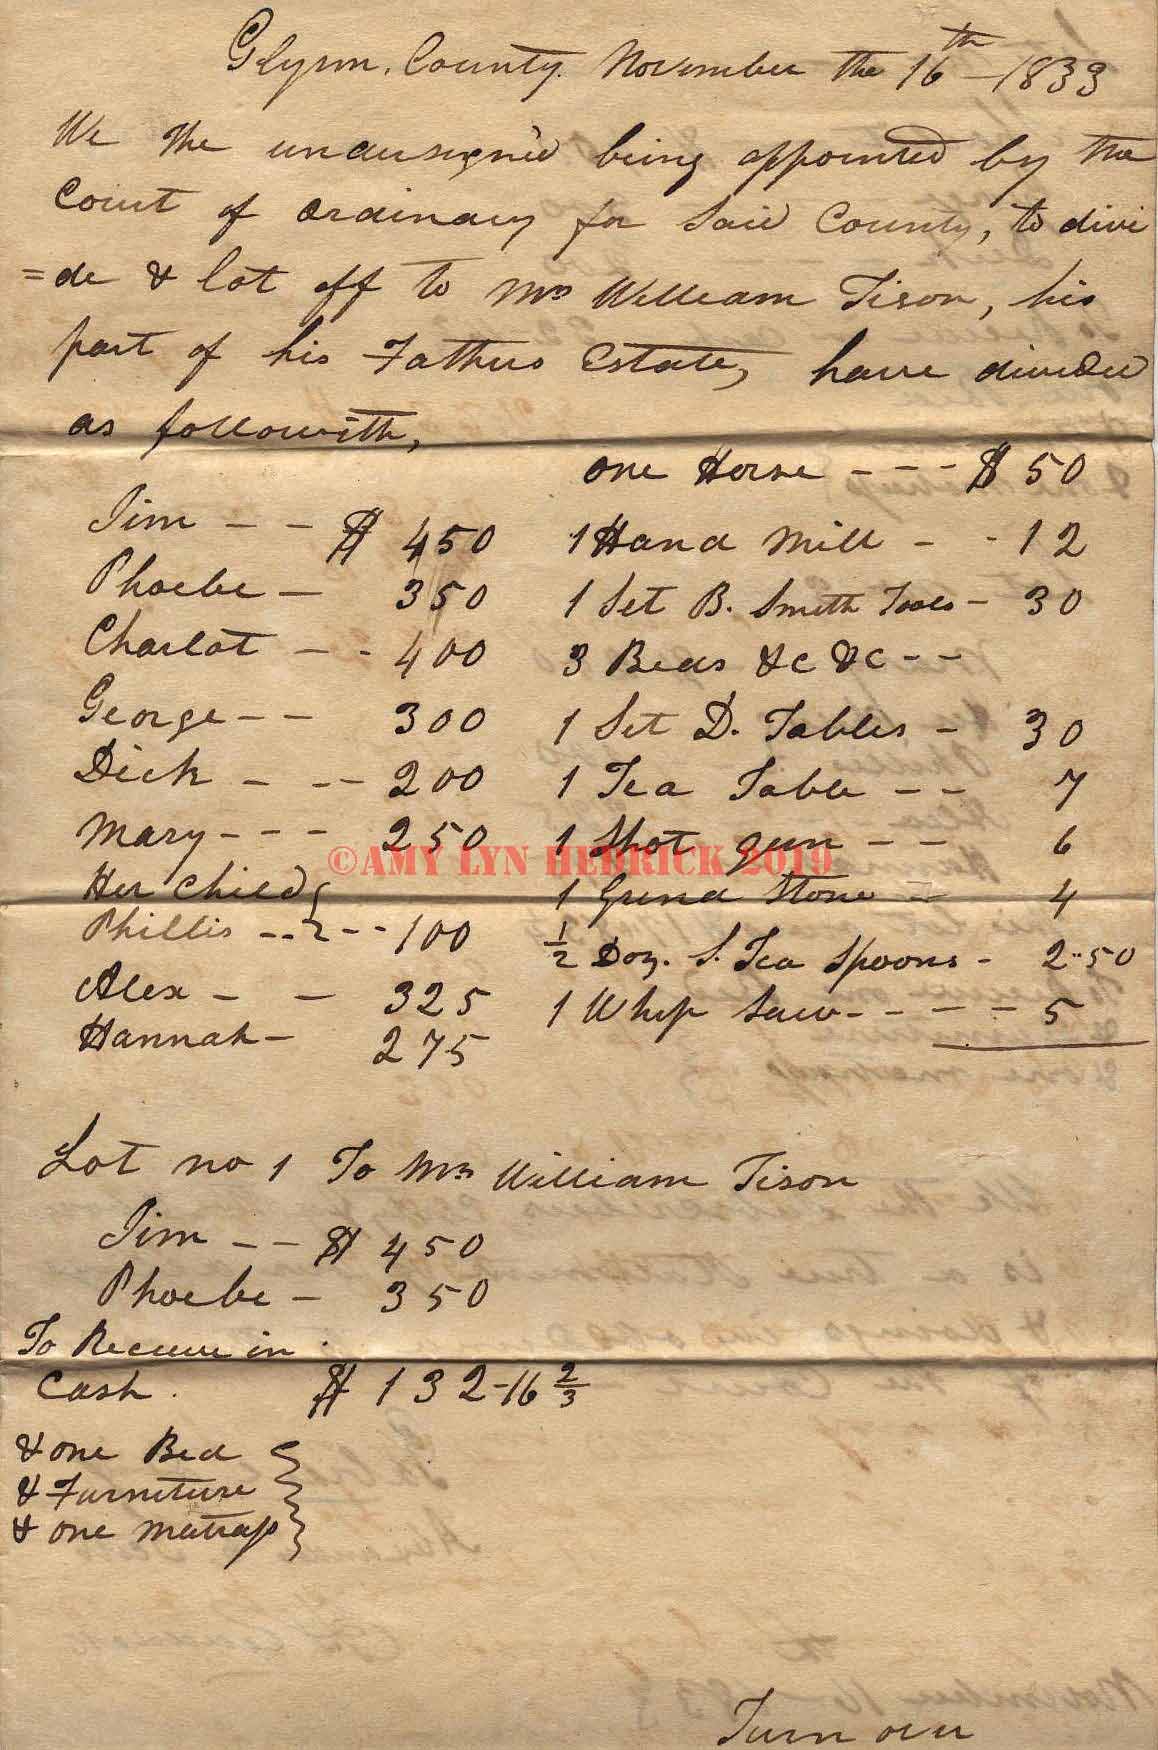 Glynn County November the 16th - 1833
We the undersigned being appointed by the
Court of ordinary for said County, to divi
=de & lot off to Mr William Tison, his
part of his Fathers Estate, have divided
as followith,
Jim - - $ 450
Phoebe - 350
Charlot - - 400
George - - 300
Dick - -- 200
Mary - - - 250
Her Child
Phillis -- -- 100
Alex - - 325
Hannah - 275
one Horse - - - $ 50
1 Hand Mill - - 12
1 Set B. Smith Tools - 30
3 Beds &c &c - -
1 Set D. Tables - 30
1 Tea Table - - 7
1 Shot gun - - 6
1 Grind Stone - 4
1/2 Doz. S. Tea Spoons - 2..50
1 Whip Saw - - - - - 5
©AMY LYN HEDRICK 2019
Lot no 1 To Mr William Tison
Jim - - $ 450
Phoebe - 350
To Receive in
Cash. $ 132-16 2/3
& one Bed
& Furniture
& one Matrass
Turn over